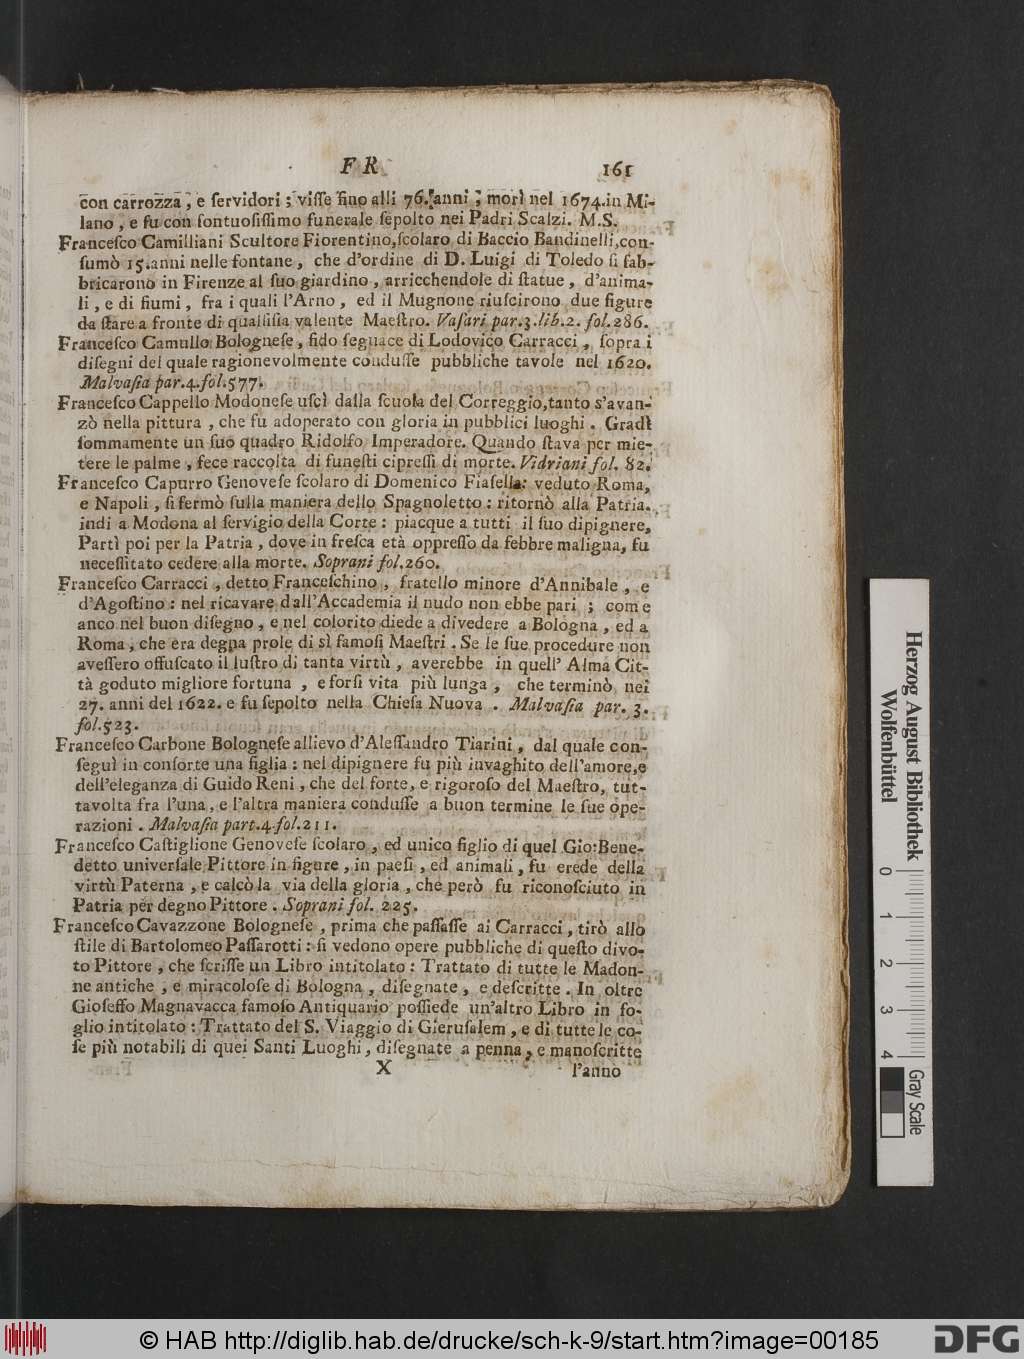 F R 161
con carrozza, e ſervidori; viſſe ſino alli 76. anni; morì nel 1674. in Mi-
lano, e fu con ſontuoſiſſimo funerale ſepolto nei Padri Scalzi. M.S.
Franceſco Camilliani Scultore Fiorentino, ſcolaro di Baccio Bandinelli, con-
ſumò 15. anni nelle fontane, che d'ordine di D. Luigi di Toledo ſi fab-
bricarono in Firenze al ſuo giardino, arricchendole di ſtatue, d'anima-
li, e di fiumi, fra i quali l'Arno, ed il Mugnone riuſcirono due figure
da ſtare a fronte di quallſiſia valente Maeſtro. Vaſari par.3. lib.2. fol.286.
Franceſco Camullo Bologneſe, fido ſeguace di Lodovico Carracci, ſopra i
diſegni del quale ragionevolmente conduſſe pubbliche tavole nel 1620.
Malvaſia par.4. fol.577.
Franceſco Cappello Modoneſe uſcì dalla ſcuola del Correggio, tanto s'avan-
zò nella pittura, che fu adoperato con gloria in pubblici luoghi. Gradì
ſommamente un ſuo quadro Ridolfo Imperadore. Quando ſtava per mie-
tere le palme, fece raccolta di funeſti cipreſſi di morte. Vidriani fol. 82.
Franceſco Capurro Genoveſe ſcolaro di Domenico Fiaſella: veduto Roma,
e Napoli, ſi fermò ſulla maniera dello Spagnoletto: ritornò alla Patria,
indi a Modona al ſervigio della Corte: piacque a tutti il ſuo dipignere,
Partì poi per la Patria, dove in freſca età oppreſſo da febbre maligna, fu
neceſſitato cedere alla morte. Soprani fol.260.
Franceſco Carracci, detto Franceſchino, fratello minore d'Annibale, e
d'Agoſtino: nel ricavare dall'Accademia il nudo non ebbe pari; come
anco nel buon diſegno, e nel colorito diede a divedere a Bologna, ed a
Roma, che era degna prole di sì famoſi Maeſtri. Se le ſue procedure non
aveſſero offuſcato il luſtro di tanta virtù, averebbe in quell' Alma Cit-
tà goduto migliore fortuna, e forſi vita più lunga, che terminò nei
27. anni del 1622. e fu ſepolto nella Chieſa Nuova. Malvaſia par. 3.
fol.523.
Franceſco Carbone Bologneſe allievo d'Aleſſandro Tiarini, dal quale con-
ſeguì in conſorte una figlia: nel dipignere fu più invaghito dell'amore, e
dell'eleganza di Guido Reni, che del forte, e rigoroſo del Maeſtro, tut-
tavolta fra l'una, e l'altra maniera conduſſe a buon termine le ſue ope-
razioni. Malvaſia part.4. fol.211.
Franceſco Caſtiglione Genoveſe ſcolaro, ed unico figlio di quel Gio: Bene-
detto univerſale Pittore in figure, in paeſi, ed animali, fu erede della
virtù Paterna, e calcò la via della gloria, che però fu riconoſciuto in
Patria per degno Pittore. Soprani fol. 225.
Franceſco Cavazzone Bologneſe, prima che paſſaſſe ai Carracci, tirò allo
ſtile di Bartolomeo Paſſarotti: ſi vedono opere pubbliche di queſto divo-
to Pittore, che ſcriſſe un Libro intitolato: Trattato di tutte le Madon-
ne antiche, e miracoloſe di Bologna, diſegnate, e deſcritte. In oltre
Gioſeffo Magnavacca famoſo Antiquario poſſiede un'altro Libro in fo-
glio intitolato: Trattato del S. Viaggio di Gieruſalem, e di tutte le co-
ſe più notabili di quei Santi Luoghi, diſegnate a penna, e manoſcritte
X l'anno
Herzog August Bibliothek
Wolfenbüttel
0 1 2 3 4
Gray Scale
© HAB http://diglib.hab.de/drucke/sch-k-9/start.htm?image=00185
DFG